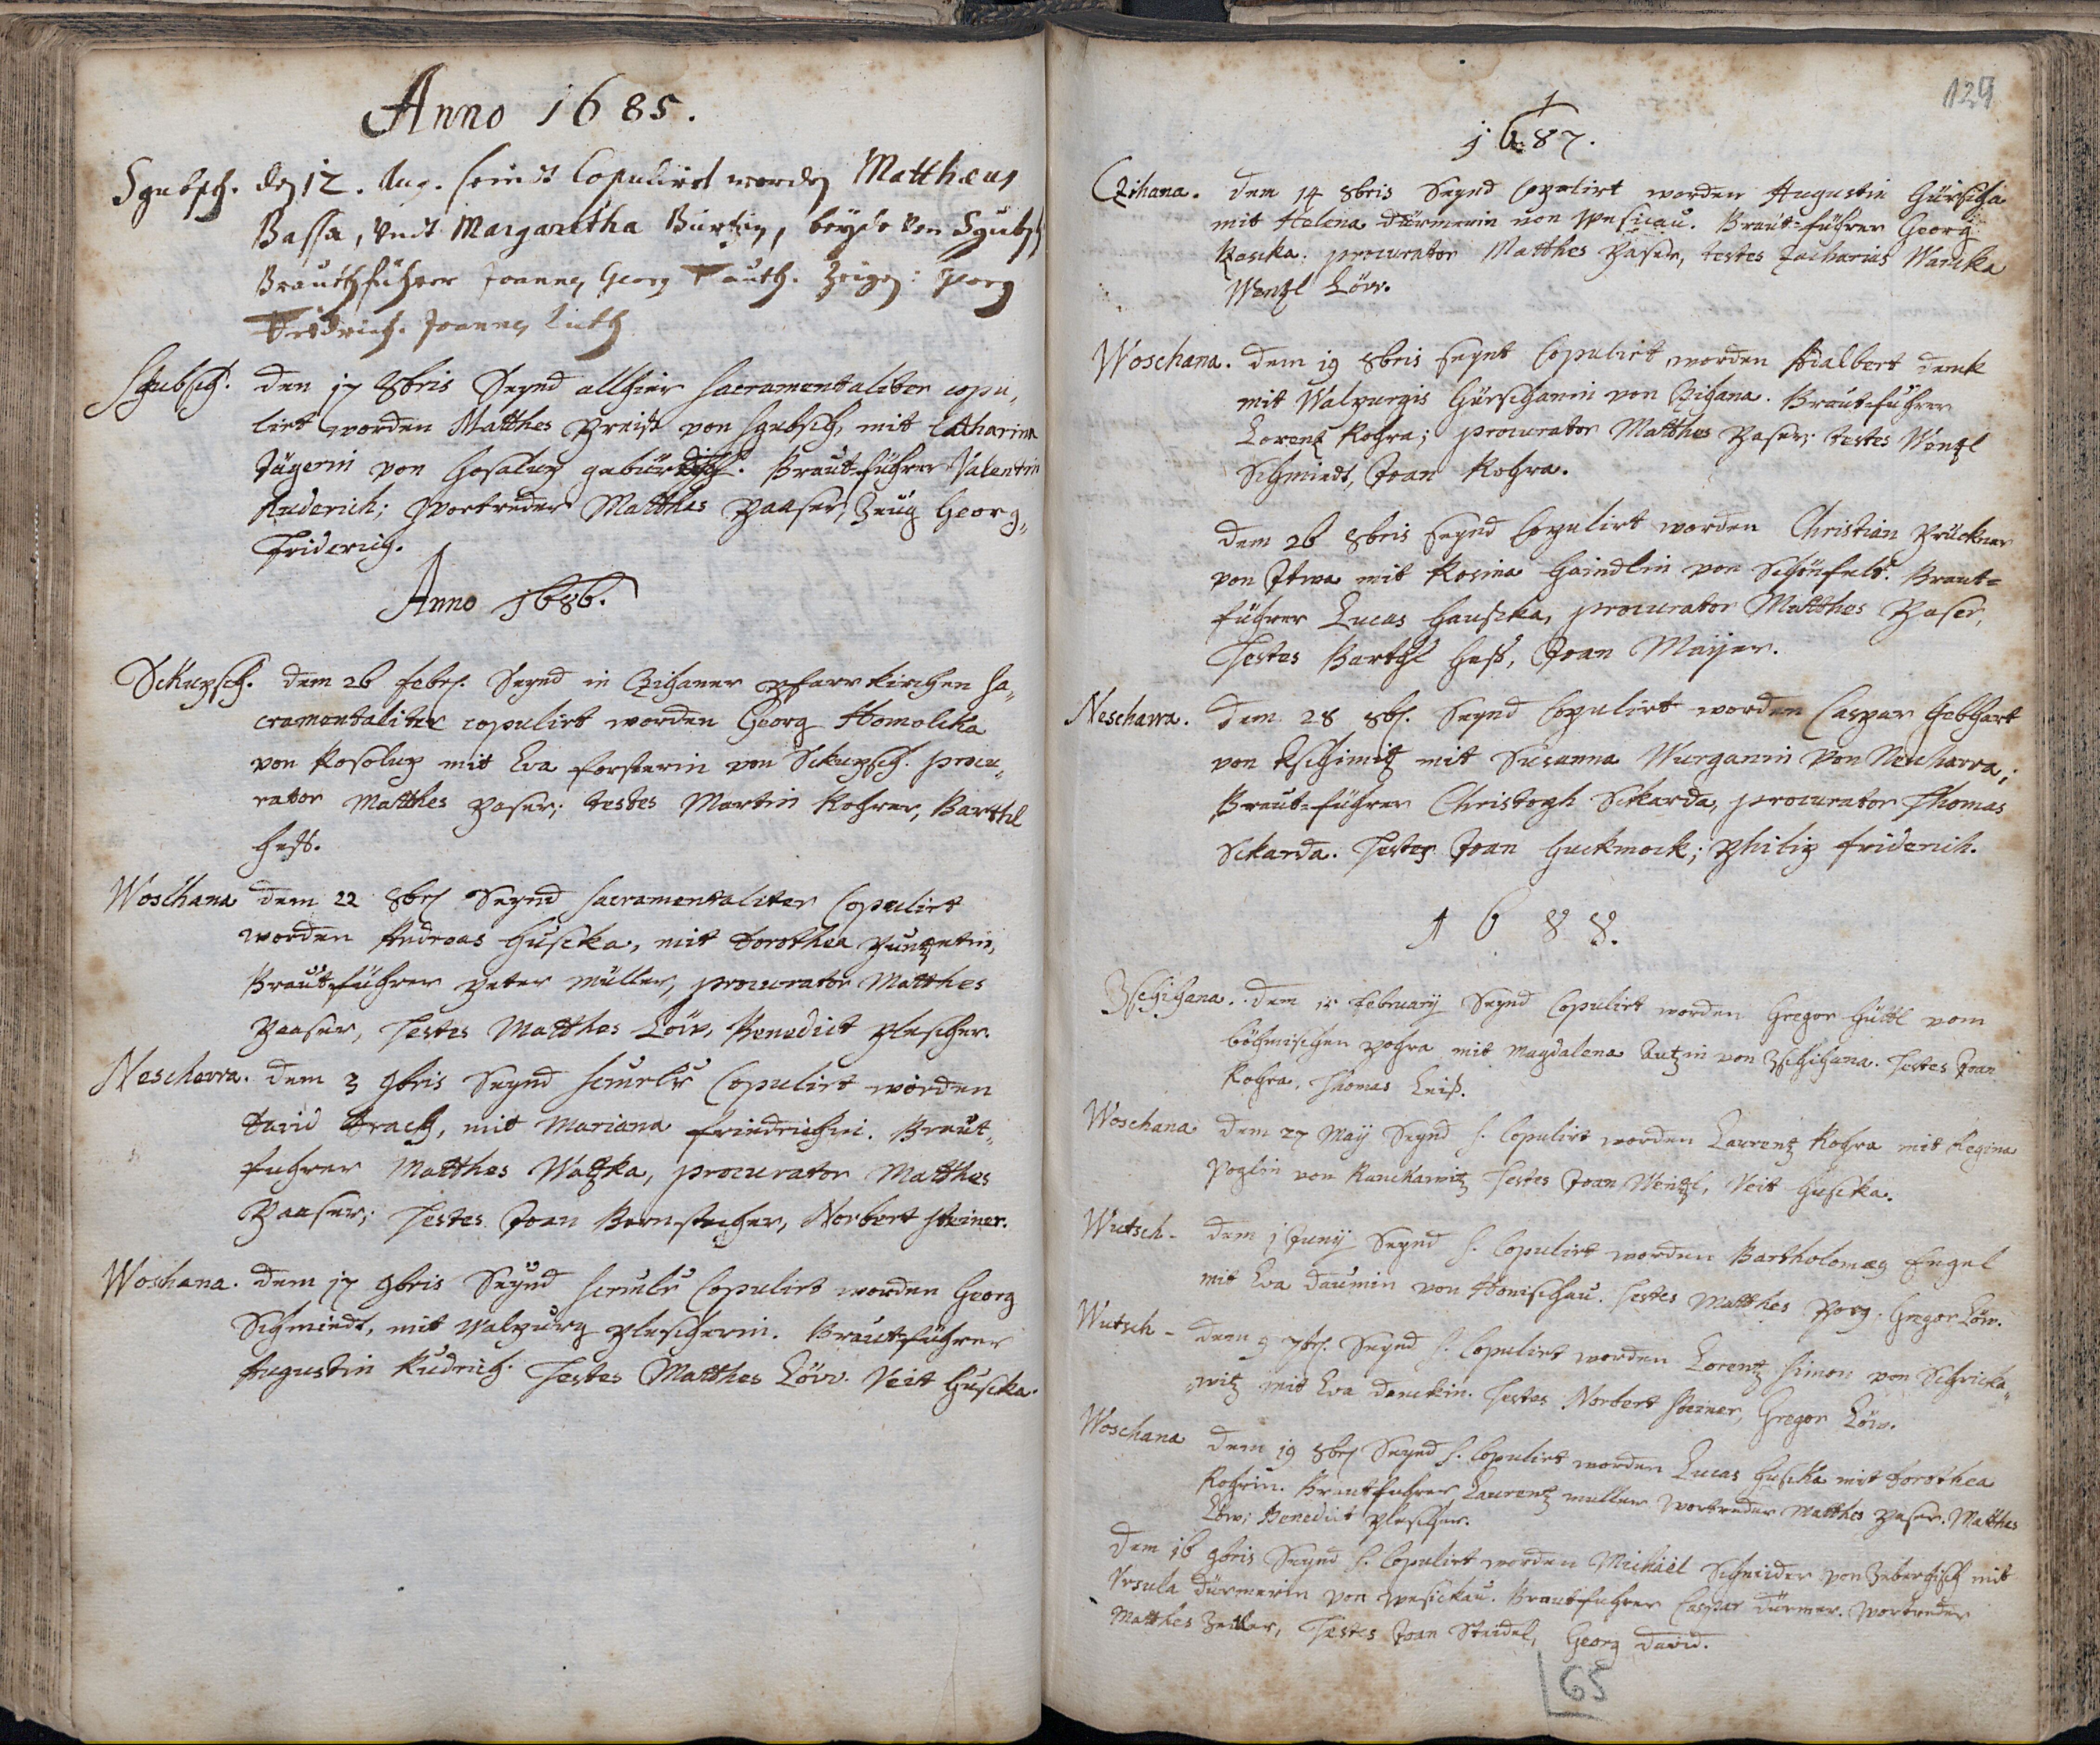 Anno 1685.
Sgubsch. den 12. Aug. seindt Copulirt worden Matthæus
Bassa, undt Margaretha, beyde von Sgubsch
Brauthführer Joannes Georg Zeugen:
Joannes
Sgubsch. den 17 8bris Seynd allhier sacramentaliter copu-
lirt worden Matthes von Sgubsch, mit Catharina
Jägerin von gebürdig. Braut-führer Valentin
Ruderich; Wortreder Matthes Paaser, Zeug Georg
Friderich.
Anno 1686.
Sckupsch. dem 26 Febr. Seynd in Czihaner Pfarrkirchen sa-
cramentaliter copulirt worden Georg Homolcka
von Kosolup mit Eva Forsterin von Sckupsch. procu-
rator Matthes Paser; testes Martin Kohrer, Barthl
Heß.
Woschana dem 22 8br Seynd sacramentaliter Copulirt
worden Andreas Huscka, mit Dorothea
Brautführer Peter Müller, procurator Matthes
Paaser, Testes Matthes Löw, Benedict Plescher.
Nescharra. dem 3 9bris Seynd Copulirt worden
David Drach, mit Mariana Friedrichin. Braut-
führer Matthes Watzka, procurator Matthes
Paaser; Testes Joan Bernstecher, Norbert Steiner.
Woschana. dem 17 9bris Seynd Copulirt worden Georg
Schmiedt, mit Walpurg Plescherin. Brautführer
Augustin Rudrich. Testes Matthes Löw. Veit Huscka.
129
1687.
Czihana. dem 14 8bris Seynd Copulirt worden Augustin Gürscha
mit Helena Dürmerin von Wesicau. Braut-führer Georg
procurator Matthes Paser, testes Zacharias Wancka
Wenzl Löw.
Woschana. dem 19 8bris seynt Copulirt worden Adalbert Denk
mit Walpurgis Gürschanin von Czihana. Brautführer
Lorentz Kohra; procurator Matthes Paser; testes Wentzl
Schmiedt, Joan Kohra.
dem 26 8bris seynd Copulirt worden Christian Prückner
von mit Rosina Haindlin von Schönfeld. Braut=
führer Lucas Hauscka, procurator Matthes Paser,
Testes Barthl Heß, Joan Mayer.
Nescharra. dem 28 8br. Seynd Copulirt worden Caspar Gebhart
von Tschimitz mit Susanna Wurganin Von Nescharra;
Braut=führer Christoph Sckarda, procurator Thomas
Sckarda. Testes Joan Guckmock; Philip Friderich.
1688.
Zschihana. dem 15 February Seynd Copulirt worden Gregor Hüttl vom
böhmischen mit Magdalena Lutzin von Zschihana. Testes Joan
Kohra, Thomas Leiß.
Woschana dem 27 May Seynd S. Copulirt worden Laurentz Kohra mit Regina
von Testes Joan Wentzl, Veit Huscka.
Wutsch- dem 1 Juny Seynd S. Copulirt worden Bartholomæg Engel
mit Eva Daumin von Honischau. Testes Matthes Gregor Löw.
Wutsch- dem 9 7br. Seynd S. Copulirt worden Lorentz Simon von Schricka-
witz mit Eva Denckin. Testes Norbert Steiner, Gregor Löw.
Woschana dem 19 8br Seynd S. Copulirt worden Lucas Huscka mit Dorothea
Kohrin. Brautführer Laurentz Muller Wortreder Matthes Paser. Matthes
Löw; Benedict Plescher.
dem 16 9bris Seynd S. Copulirt worden Michäel Schneider von mit
Vrsula Dürmerin von Wesickau. Brautfuhrer Caspar Dürmer. Wortreder
Matthes Zeitler, Testes Joan Steidel, Georg David.
65